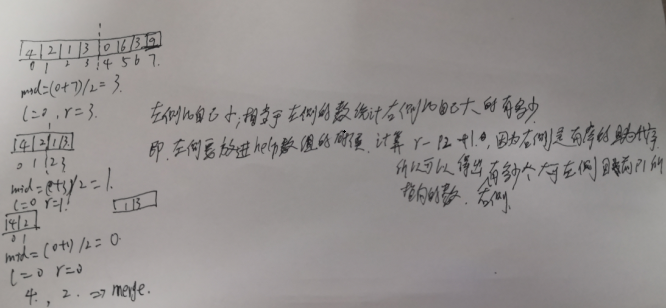 4 2 1 3 0 6 3 9
0 1 2 3 4 5 6 7.
mid=(0+7)/2=3.
l=0, r=3.
4 2 1 3
0 1 2 3
mid=(0+3)/2=1.
l=0 r=1.
1 3
4 2
0 1
mid=(0+1)/2=0.
l=0 r=0
4, 2. => merge.
左侧比自己小,相当于左侧的数统计右侧比自己大的有多少
即左侧要放进help数组的时候,计算 r-p2+1. 因为右侧是有序的
所以可以得出有多少个大于左侧目前P1所
指向的数. 右侧.